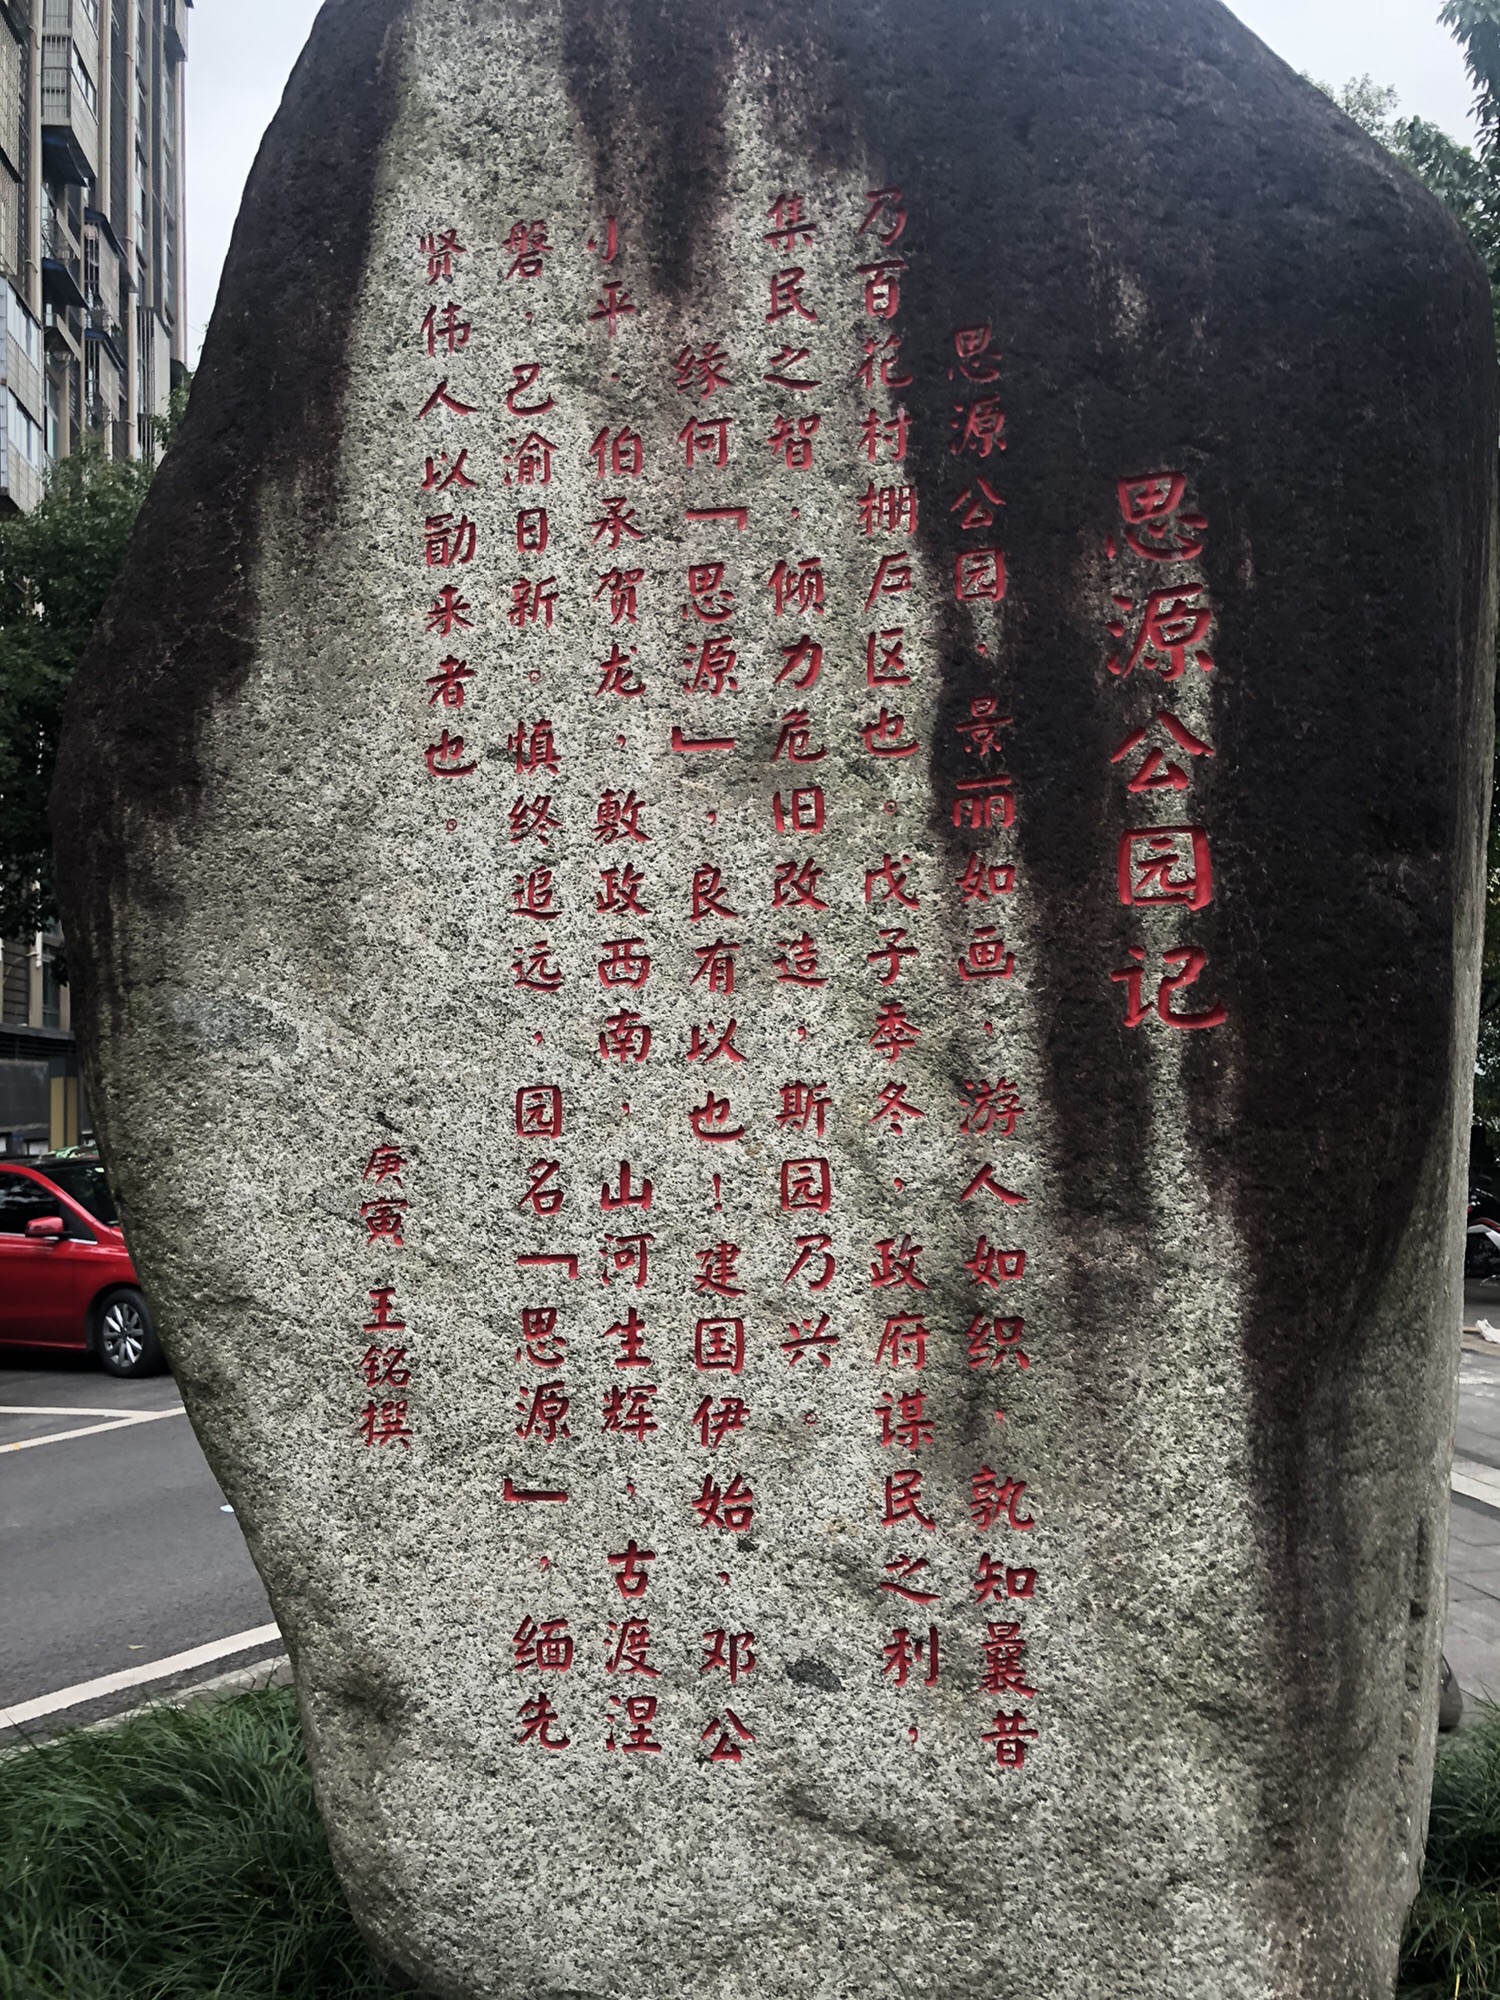 思源公园记
思源公园，景丽如画，游人如织。孰知曩昔
乃百花村棚户区也。戊子季冬，政府谋民之利，
集民之智，倾力危旧改造，斯园乃兴。
缘何「思源」，良有以也！建国伊始，邓公
小平·伯承贺龙，敷政西南，山河生辉，古渡涅
磐，巴渝日新。慎终追远，园名「思源」，缅先
贤伟人以勖来者也。
庚寅 王铭撰